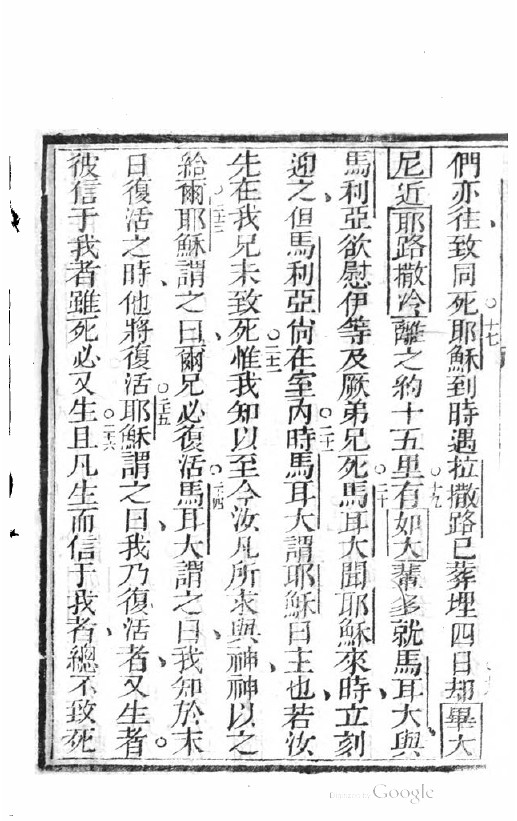 們亦往致同死○十七耶穌到時遇拉撒路已葬埋四日却畢大
尼近耶路撒冷離之約十五里有○十九如大輩多就馬耳大與
馬利亞欲慰伊等及厥弟兄死○二十馬耳大聞耶穌來時立刻
迎之但馬利亞尙在室內時○二十一馬耳大謂耶穌曰主也若汝
先在我兄未致死○二十二惟我知以至今汝凡所求與神神以之
給爾○二十三耶穌謂之曰爾兄必復活○二十四馬耳大謂之曰我知於末
日復活之時他將復活○二十五耶穌謂之曰我乃復活者又生者○
彼信于我者雖死必又生○二十六且凡生而信于我者總不致死
Digitized by Google